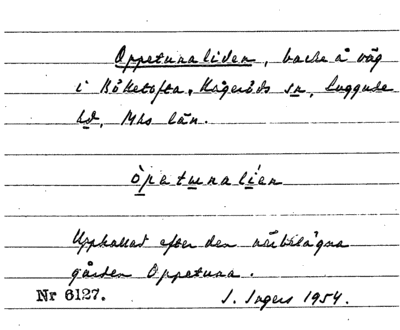 Oppetunaliden, backe å väg
i Böketofta, Kågeröds sn, Luggude
hd, Mhs län.
òpetɯnalíen
Uppkallad efter den närbelägna
gården Oppetuna.
Nr 6127. I. Ingers 1954.